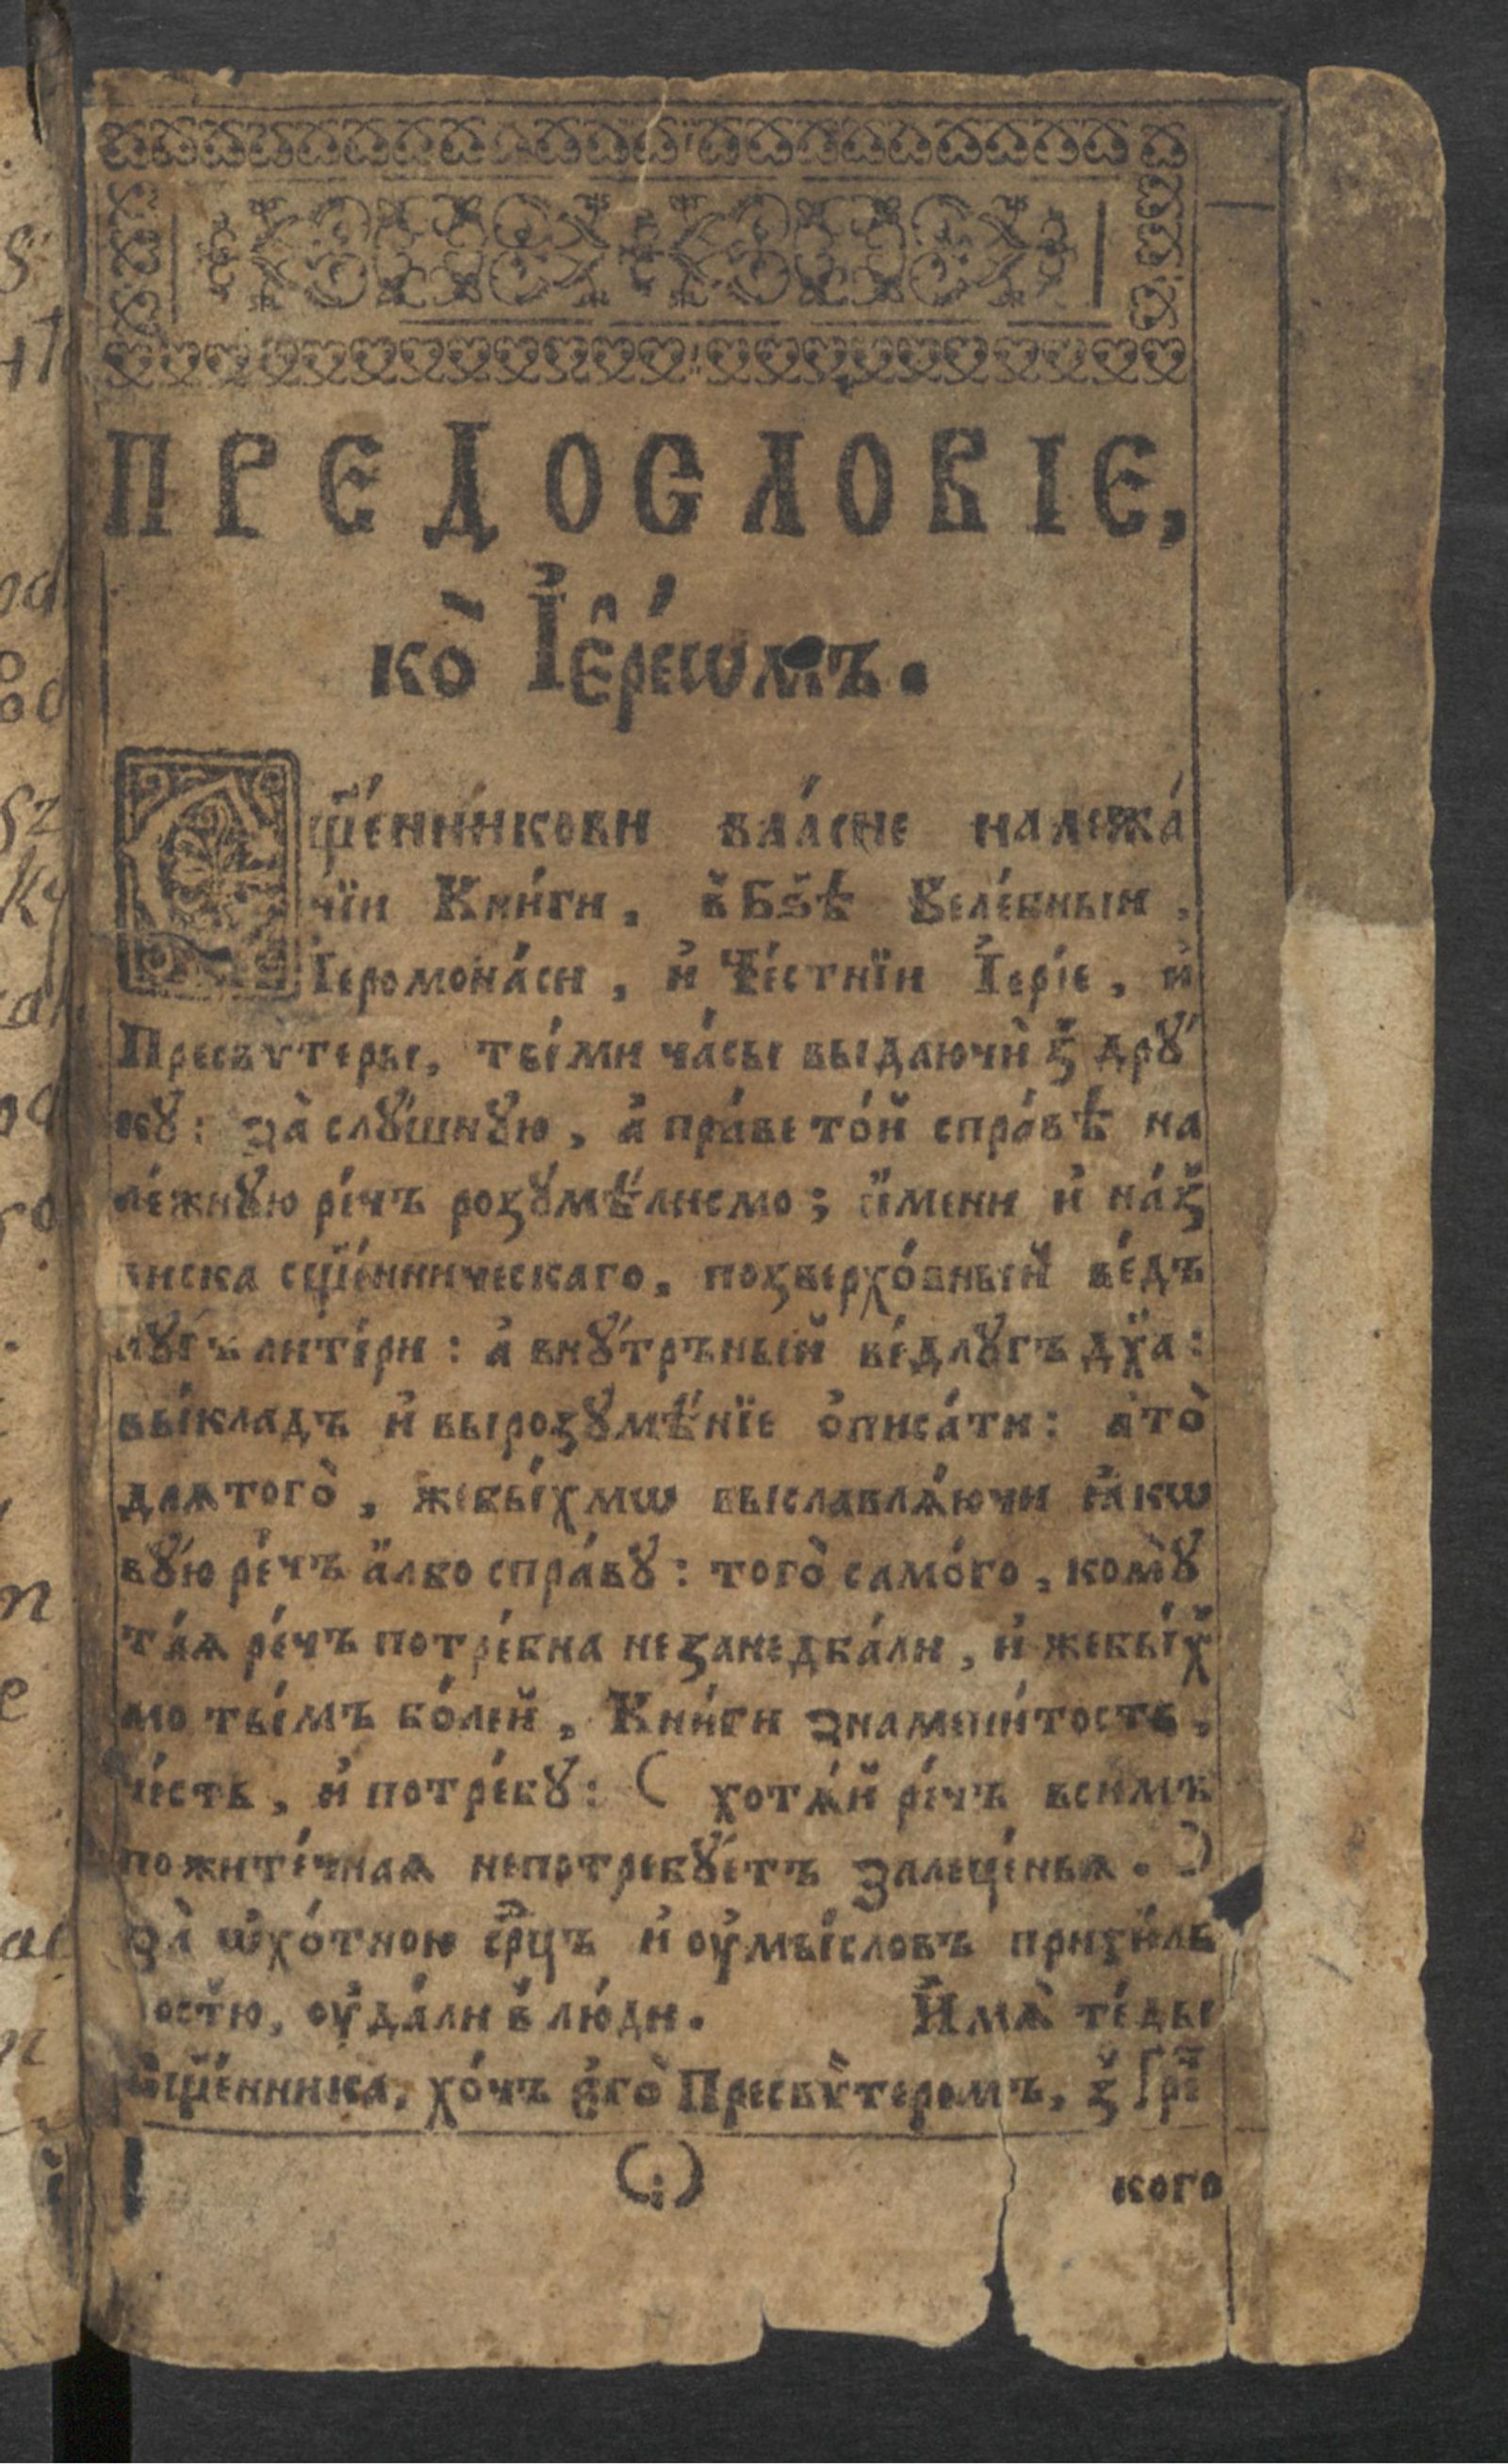 ПРЕДОСЛОВІЕ,
ко̀ І҆е҆ре́ѡмъ.
Сщ҃е́нникови вла́сне належа́
чїи Кни́ги, в̾ Бз҃ѣ Веле́бныи,
І҆еромона́си, и҆ Че́стнїи І҆ере́е, и҆
Пресвѵтеры, ты́ми ча́сы выдаючѝ з̾ дрꙋ́
кꙋ: за̀ слꙋ́шнꙋю, а҆ пра́ве то́й спра́вѣ на
ле́жнꙋю ре́чъ розꙋмѣ́лисмо; и҆́мени и҆ на́з̾
виска сщ҃е́нническаго, позверхо́вный ве́дъ
лꙋгъ лите́ри: а҆ внꙋ́тръный ве́длꙋгъ дх҃а:
вы́кладъ и҆ вырозꙋмѣ́нїе ѻ҆писа́ти: а҆ то̀
длѧ того̀, жебы́хмѡ выславлѧ́ючи ꙗ҆кѡ
вꙋ́ю ре́чъ а҆́лбо спра́вꙋ: того̀ само́го, комꙋ̀
та́ѧ ре́чъ потре́бна незанедба́ли, и҆ жебы́х̾
мо ты́мъ бо́лей, Кни́ги знамени́тость,
че́сть, и҆ потре́бꙋ: ( хотѧ́й ре́чъ всимъ
пожите́чнаѧ непотребꙋ́етъ залеце́ньѧ. )
за̀ ѡ҆хо́тною ср҃цъ и҆ оу҆мы́словъ прихи́ль
ностю, оу҆да́ли в̾ лю́ди. И҆мѧ̀ те́ды
Сщ҃е́нника, хо́чъ є҆го̀ Пресвѵ̀теромъ, з̾ Гре́
кого